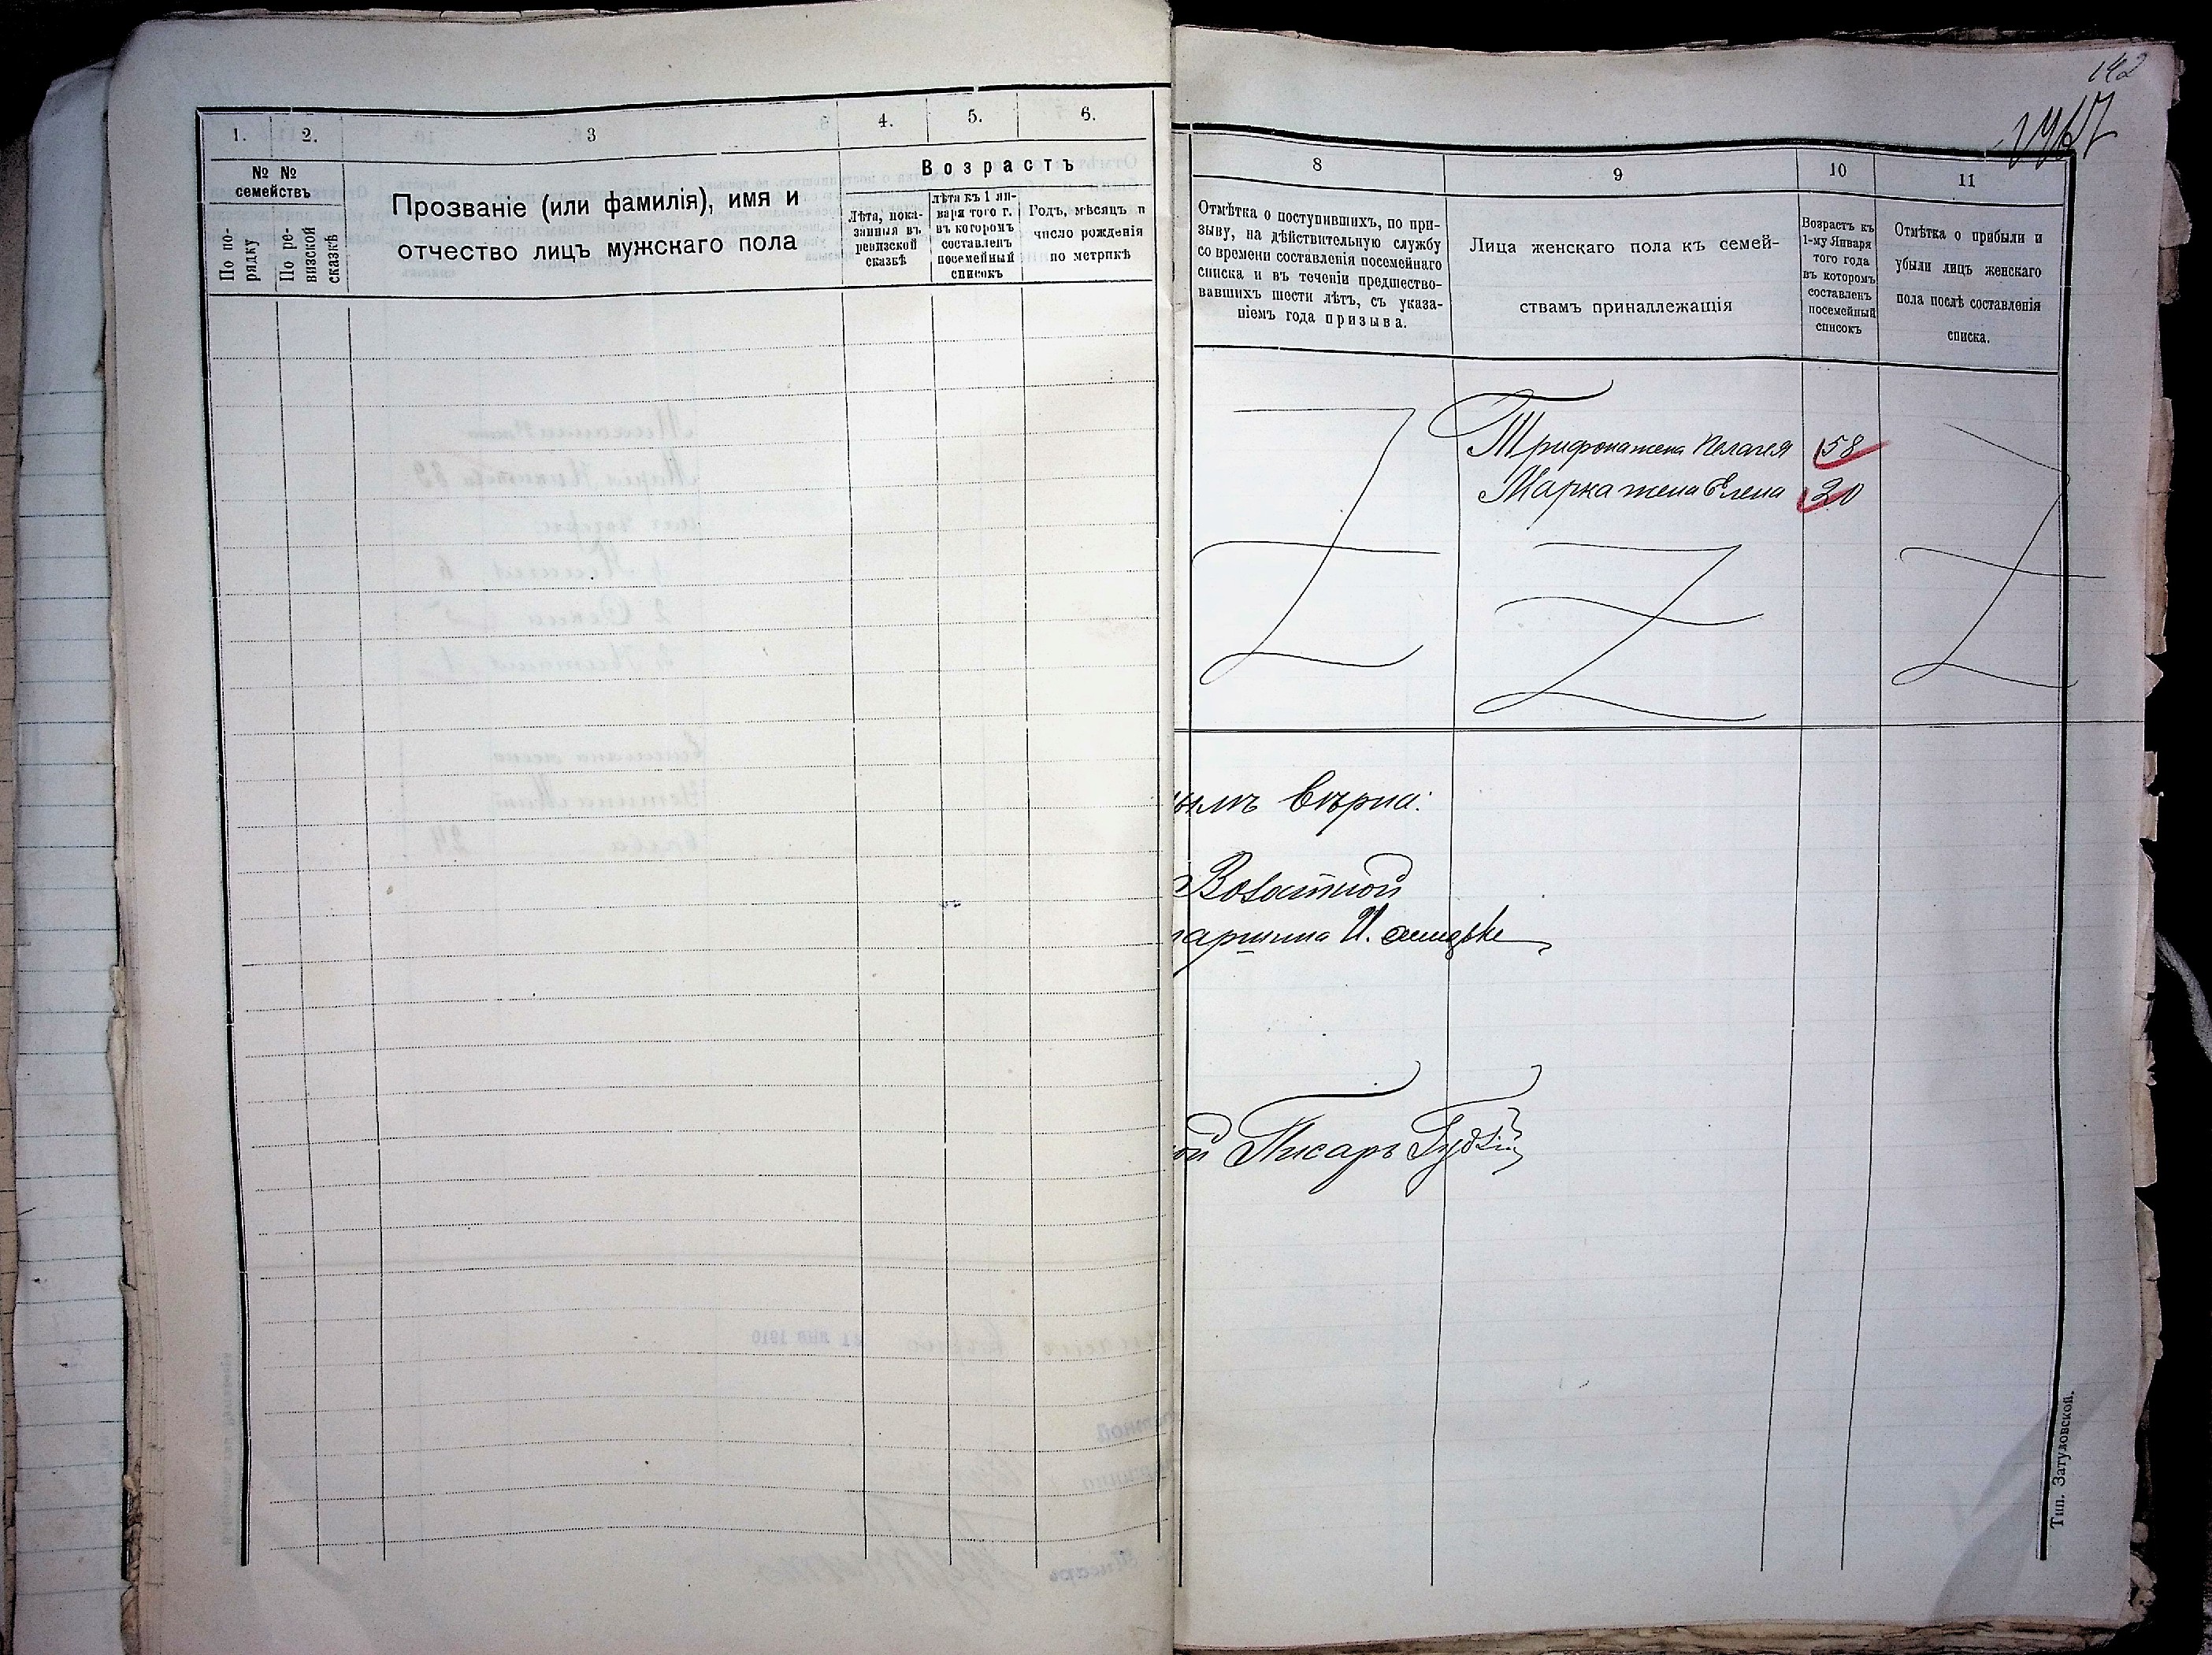 1.
2.
3
4.
5.
6.
№ №
семействъ
По по-
рядку
По ре-
визской
сказкѣ
Прозваніе (или фамилія), имя и
отчество лицъ мужскаго пола
Возрастъ
Лѣта, пока-
занныя въ
ревизской
сказкѣ
лѣта къ 1 ян-
варя того г.
въ которомъ
составленъ
посемейный
списокъ
Годъ, мѣсяцъ и
число рожденія
по метрикѣ
142
8
9
10
11
Отмѣтка о поступившихъ, по при-
зыву, на дѣйствительную службу
со времени составленія посемейнаго
списка и въ теченіи предшество-
вавшихъ шести лѣтъ, съ указа-
ніемъ года призыва.
Лица женскаго пола къ семей-
ствамъ принадлежащія
Возрастъ къ
1-му Января
того года
въ которомъ
составленъ
посемейный
списокъ
Отмѣтка о прибыли и
убыли лицъ женскаго
пола послѣ составленія
списка.
Трифона жена Пелагея 58
Марка жена Елена 20
ымъ вѣрна:
Волостной
таршина И.
ой Писарь
Тип. Затуловской.